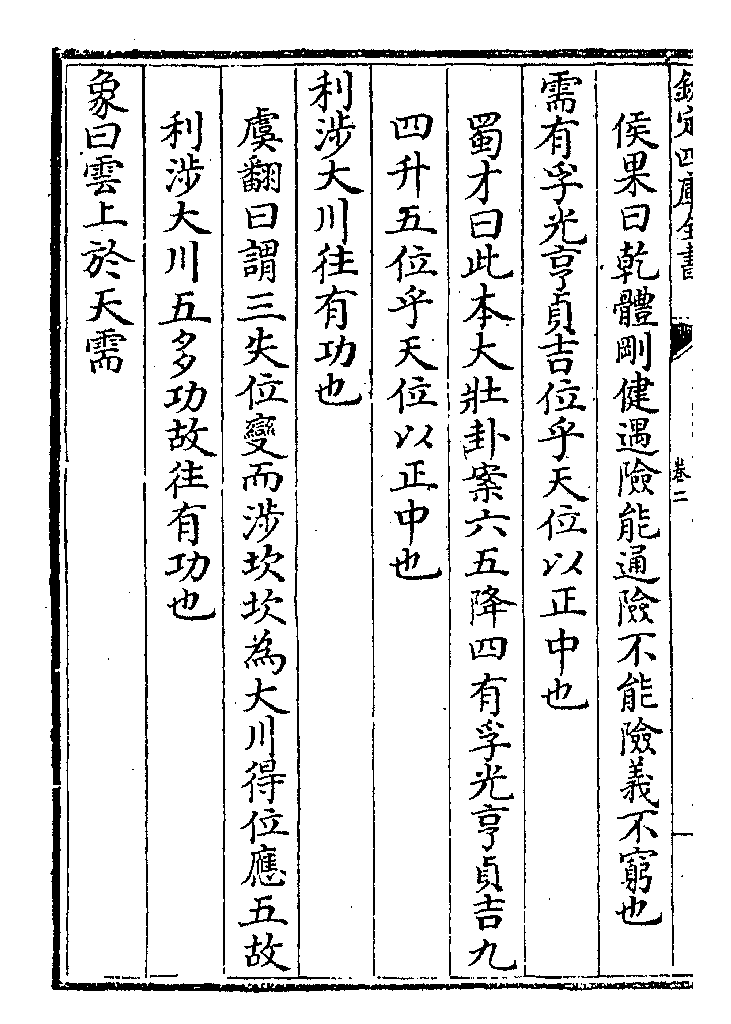 欽定四庫全書
卷二
侯果曰乾體剛健遇險能通險不能險義不窮也
需有孚光亨貞吉位乎天位以正中也
蜀才曰此本大壯卦案六五降四有孚光亨貞吉九
四升五位乎天位以正中也
利涉大川往有功也
虞翻曰謂三失位變而涉坎坎為大川得位應五故
利涉大川五多功故往有功也
象曰雲上於天需